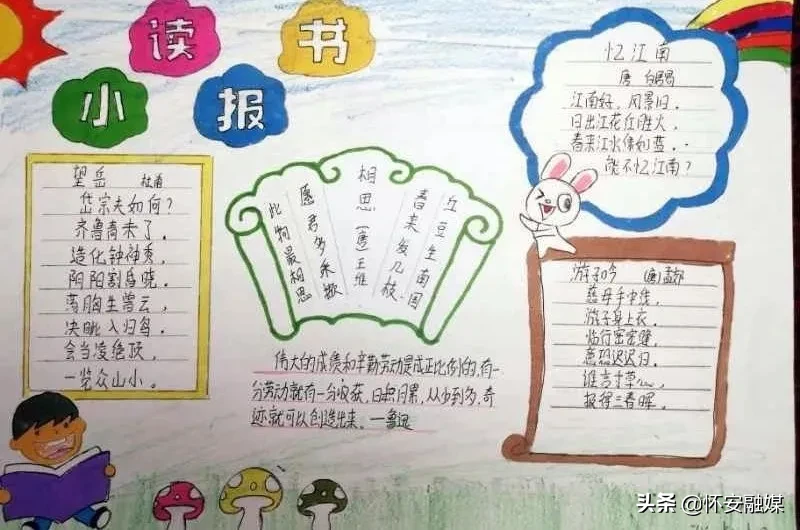 读书
小报
望岳 杜甫
岱宗夫如何?
齐鲁青未了,
造化钟神秀,
阴阳割昏晓.
荡胸生曾云,
决眦入归鸟.
会当凌绝顶,
一览众山小。
红豆生南国
春来发几枝.
相思(唐)王维
愿君多采撷
此物最相思
伟大的成绩和辛勤劳动是成正比例的,有一
分劳动就有一分收获,日积月累,从少到多,奇
迹就可以创造出来。—鲁迅
忆江南
唐 白居易
江南好,风景旧.
日出江花红胜火,
春来江水绿如蓝.
能不忆江南?
游子吟 (唐)孟郊
慈母手中线,
游子身上衣.
临行密密缝,
意恐迟迟归.
谁言寸草心,
报得三春晖.
头条 @怀安融媒